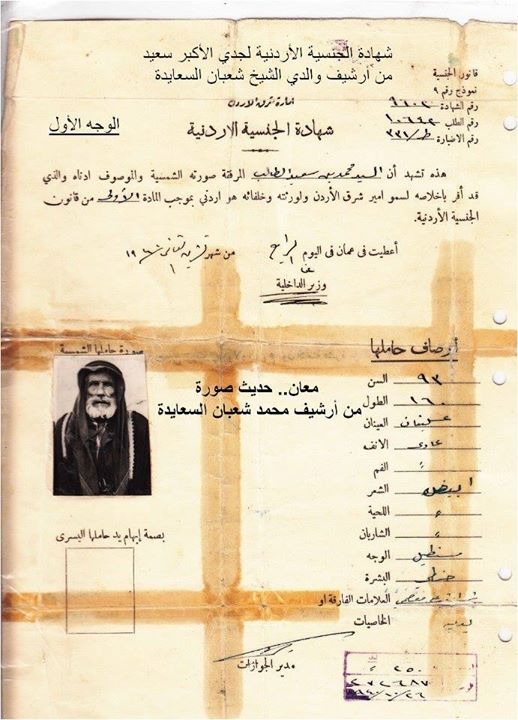 شهادة الجنسية الأردنية لجدي الأكبر سعيد
من أرشيف والدي الشيخ شعبان السعايدة
الوجه الأول
قانون الجنسية
نموذج رقم ٩
رقم الشهادة
رقم الطلب ١٠٦٤٢
رقم الاضبارة
امارة شرق الاردن
شهادة الجنسية الاردنية
هذه تشهد أن السيد محمد بن سعيد المرفقة صورته الشمسية والموصوف ادناه والذي
قد أقر باخلاصه لسمو امير شرق الأردن ولورثته وخلفائه هو اردني بموجب المادة الأولى من قانون
الجنسية الأردنية.
أعطيت في عمان في اليوم الرابع من شهر تشرين الثاني
وزير الداخلية
صورة حاملها الشمسية
أوصاف حاملها
معان.. حديث صورة
من أرشيف محمد شعبان السعايدة
السن ٩٣
الطول ١٦٠
العينان
الانف عادي
الفم "
الشعر ابيض
اللحية "
الشاربان "
الوجه مستطيل
البشرة حنطي
العلامات الفارقة او
الخاصيات
بصمة إبهام يد حاملها اليسرى
مدير الجوازات
٢٥٠